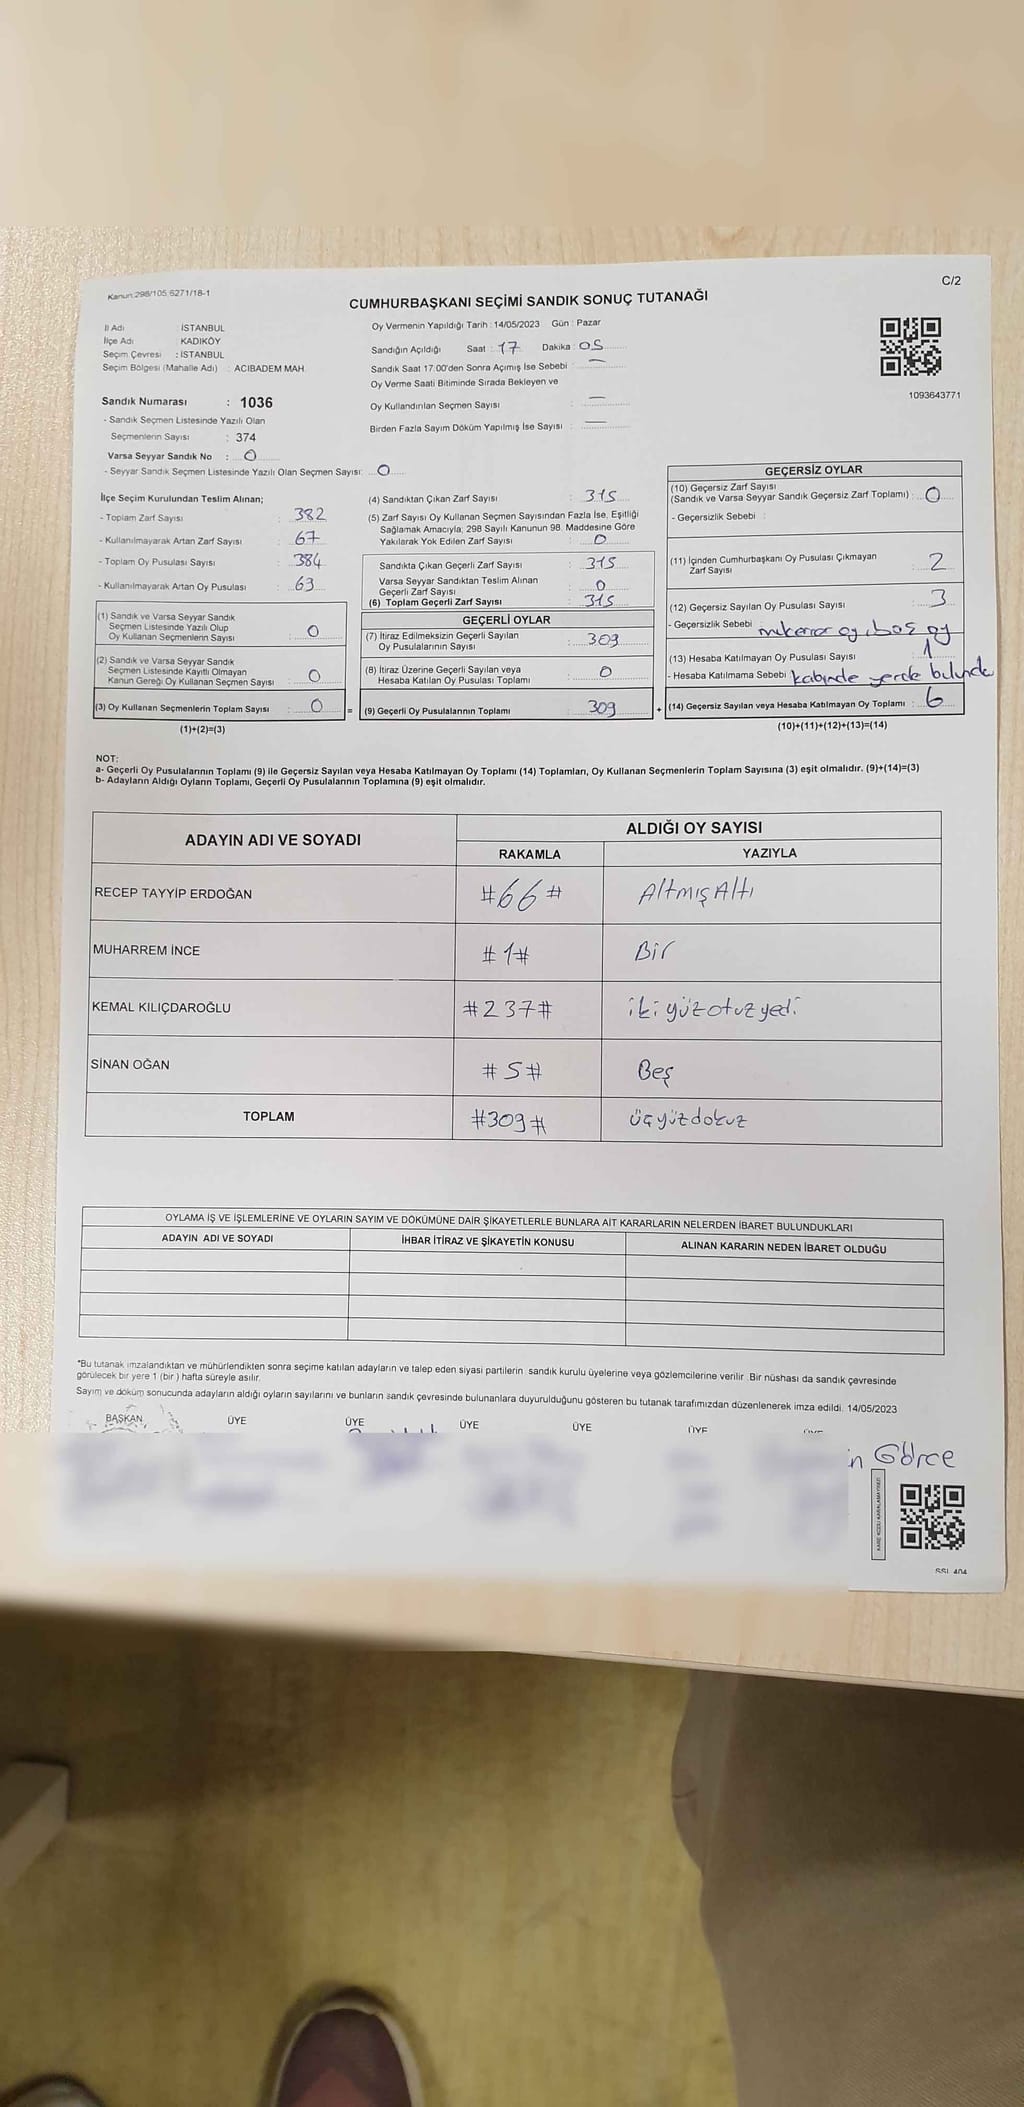 Kanun:298/105,6271/18-1
C/2
CUMHURBAŞKANI SEÇİMİ SANDIK SONUÇ TUTANAĞI
İl Adı : İSTANBUL
İlçe Adı : KADIKÖY
Seçim Çevresi : İSTANBUL
Seçim Bölgesi (Mahalle Adı) : ACIBADEM MAH.
Sandık Numarası : 1036
- Sandık Seçmen Listesinde Yazılı Olan
Seçmenlerin Sayısı : 374
Varsa Seyyar Sandık No : 0
- Seyyar Sandık Seçmen Listesinde Yazılı Olan Seçmen Sayısı: 0
Oy Vermenin Yapıldığı Tarih : 14/05/2023 Gün : Pazar
Sandığın Açıldığı Saat : 17 Dakika : 05
Sandık Saat 17:00'den Sonra Açımış İse Sebebi : —
Oy Verme Saati Bitiminde Sırada Bekleyen ve
Oy Kullandırılan Seçmen Sayısı : —
Birden Fazla Sayım Döküm Yapılmış İse Sayısı : —
1093643771
İlçe Seçim Kurulundan Teslim Alınan;
- Toplam Zarf Sayısı : 382
- Kullanılmayarak Artan Zarf Sayısı : 67
- Toplam Oy Pusulası Sayısı : 384
- Kullanılmayarak Artan Oy Pusulası : 63
(1) Sandık ve Varsa Seyyar Sandık
Seçmen Listesinde Yazılı Olup
Oy Kullanan Seçmenlerin Sayısı : 0
(2) Sandık ve Varsa Seyyar Sandık
Seçmen Listesinde Kayıtlı Olmayan
Kanun Gereği Oy Kullanan Seçmen Sayısı : 0
(3) Oy Kullanan Seçmenlerin Toplam Sayısı : 0 =
(1)+(2)=(3)
(4) Sandıktan Çıkan Zarf Sayısı : 315
(5) Zarf Sayısı Oy Kullanan Seçmen Sayısından Fazla İse, Eşitliği
Sağlamak Amacıyla; 298 Sayılı Kanunun 98. Maddesine Göre
Yakılarak Yok Edilen Zarf Sayısı : 0
Sandıkta Çıkan Geçerli Zarf Sayısı : 315
Varsa Seyyar Sandıktan Teslim Alınan
Geçerli Zarf Sayısı : 0
(6) Toplam Geçerli Zarf Sayısı : 315
GEÇERLİ OYLAR
(7) İtiraz Edilmeksizin Geçerli Sayılan
Oy Pusulalarının Sayısı : 309
(8) İtiraz Üzerine Geçerli Sayılan veya
Hesaba Katılan Oy Pusulası Toplamı : 0
(9) Geçerli Oy Pusulalarının Toplamı : 309 +
GEÇERSİZ OYLAR
(10) Geçersiz Zarf Sayısı
(Sandık ve Varsa Seyyar Sandık Geçersiz Zarf Toplamı) : 0
- Geçersizlik Sebebi :
(11) İçinden Cumhurbaşkanı Oy Pusulası Çıkmayan
Zarf Sayısı : 2
(12) Geçersiz Sayılan Oy Pusulası Sayısı : 3
- Geçersizlik Sebebi : mükerrer oy, boş oy
(13) Hesaba Katılmayan Oy Pusulası Sayısı : 1
- Hesaba Katılmama Sebebi : kabinde yerde bulundu
(14) Geçersiz Sayılan veya Hesaba Katılmayan Oy Toplamı : 6
(10)+(11)+(12)+(13)=(14)
NOT:
a- Geçerli Oy Pusulalarının Toplamı (9) ile Geçersiz Sayılan veya Hesaba Katılmayan Oy Toplamı (14) Toplamları, Oy Kullanan Seçmenlerin Toplam Sayısına (3) eşit olmalıdır. (9)+(14)=(3)
b- Adayların Aldığı Oyların Toplamı, Geçerli Oy Pusulalarının Toplamına (9) eşit olmalıdır.
ADAYIN ADI VE SOYADI
ALDIĞI OY SAYISI
RAKAMLA YAZIYLA
RECEP TAYYİP ERDOĞAN #66# Altmış Altı
MUHARREM İNCE #1# Bir
KEMAL KILIÇDAROĞLU #237# iki yüz otuz yedi
SİNAN OĞAN #5# Beş
TOPLAM #309# üç yüz dokuz
OYLAMA İŞ VE İŞLEMLERİNE VE OYLARIN SAYIM VE DÖKÜMÜNE DAİR ŞİKAYETLERLE BUNLARA AİT KARARLARIN NELERDEN İBARET BULUNDUKLARI
ADAYIN ADI VE SOYADI İHBAR İTİRAZ VE ŞİKAYETİN KONUSU ALINAN KARARIN NEDEN İBARET OLDUĞU
*Bu tutanak imzalandıktan ve mühürlendikten sonra seçime katılan adayların ve talep eden siyasi partilerin sandık kurulu üyelerine veya gözlemcilerine verilir. Bir nüshası da sandık çevresinde
görülecek bir yere 1 (bir) hafta süreyle asılır.
Sayım ve döküm sonucunda adayların aldığı oyların sayılarını ve bunların sandık çevresinde bulunanlara duyurulduğunu gösteren bu tutanak tarafımızdan düzenlenerek imza edildi. 14/05/2023
BAŞKAN ÜYE ÜYE ÜYE ÜYE ÜYE
n Görce
KARE KODU KARALAMAYINIZ!